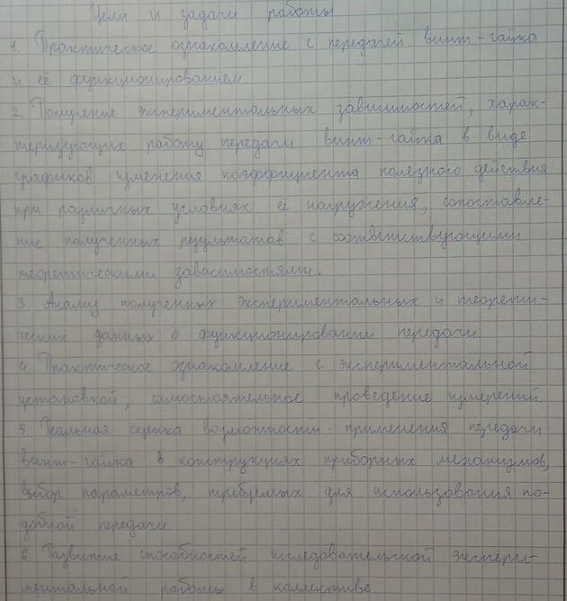 Цели и задачи работы
1. Практическое ознакомление с передачей винт-гайка
и её функционированием
2. Получение экспериментальных зависимостей, харак-
теризующих работу передачи винт-гайка в виде
графиков изменения коэффициента полезного действия
при различных условиях её нагружения, сопоставле-
ние полученных результатов с соответствующими
теоретическими зависимостями.
3. Анализ полученных экспериментальных и теорети-
ческих данных о функционировании передачи
4. Практическое ознакомление с экспериментальной
установкой, самостоятельное проведение измерений.
5. Реальная оценка возможности применения передачи
винт-гайка в конструкциях приборных механизмов,
выбор параметров, требуемых для использования по-
добной передачи.
6. Развитие способностей исследовательской экспери-
ментальной работы в коллективе.